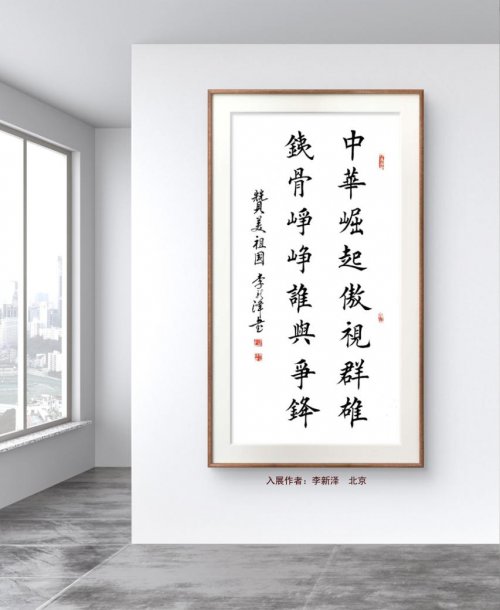 中華崛起傲視群雄
銕骨崢崢誰與爭鋒
贊美祖国 李新泽書
入展作者：李新泽 北京